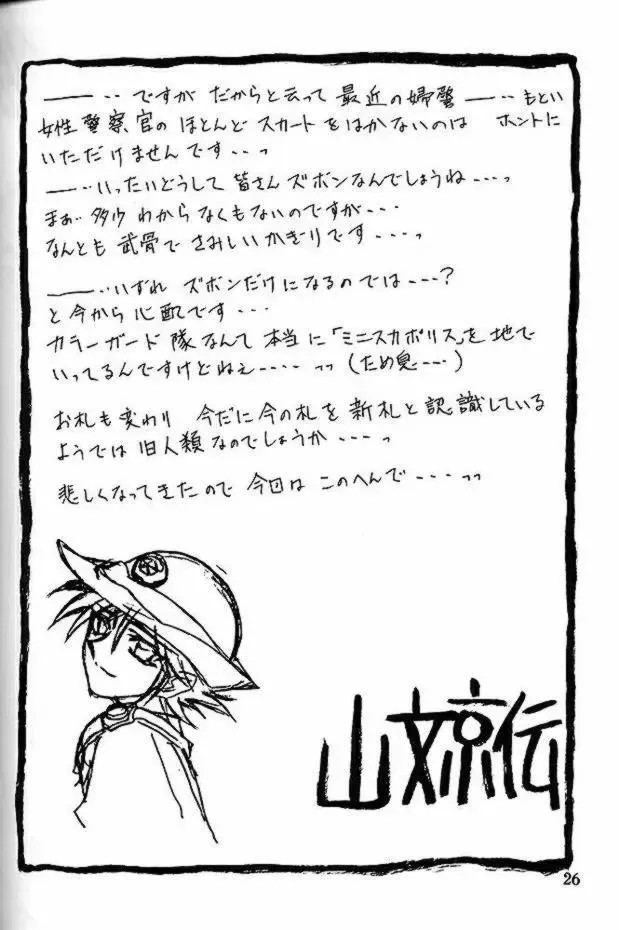 ―――‥ですが だからと云って 最近の婦警―――‥もとい
女性警察官の ほとんど スカートをはかないのは ホントに
いただけませんです・・・っ
―――‥いったいどうして 皆さん ズボンなんでしょうね・・・・っ
まぁ‥多少 わからなくもないのですが・・・
なんとも 武骨で さみしいかぎりです・・・・っ
―――‥いずれ ズボンだけになるのでは・・・・?
と今から心配です・・・
カラーガード隊なんて 本当に「ミニスカポリス」を地で
いってるんですけどねぇ・・・・・ っっ (ため息・・・・)
お札も変わり 今だに今の札を 新札と認識している
ようでは 旧人類なのでしょうか・・・・っ
悲しくなってきたので 今回は このへんで・・・・っっ
山文京伝
26